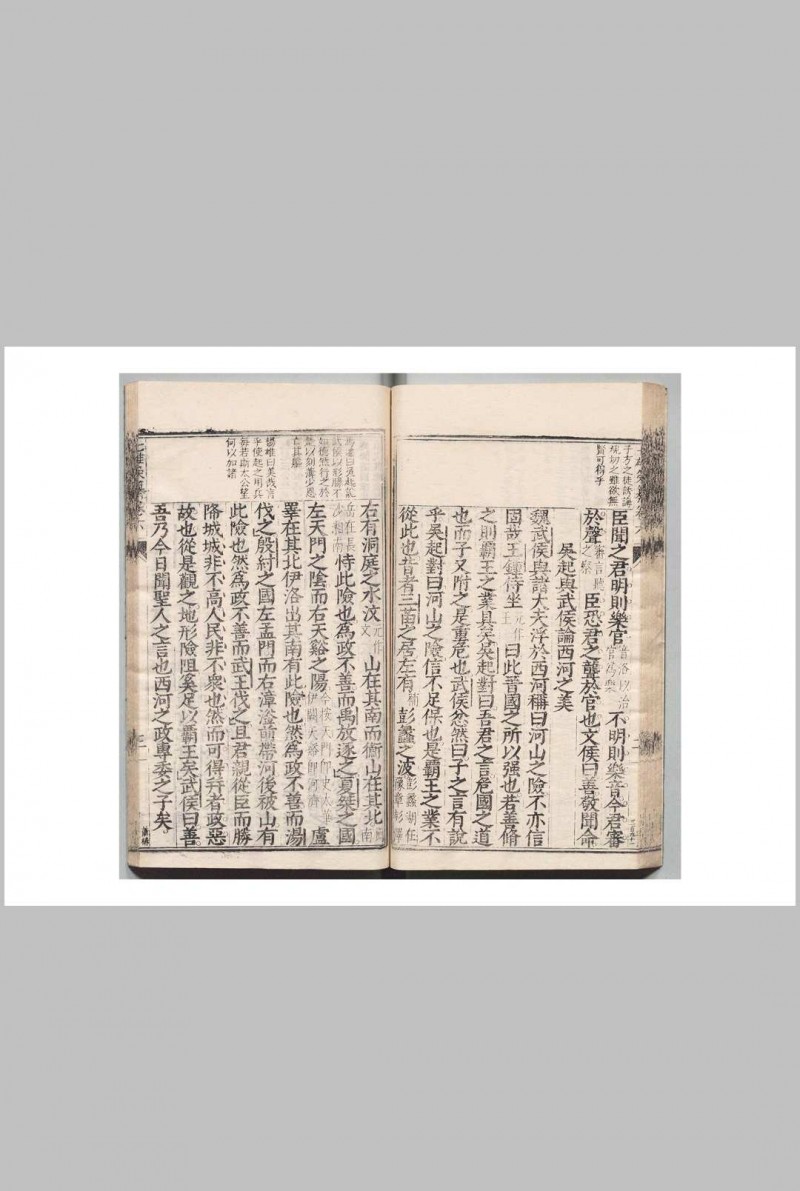 子方之徒誘論
臣聞之君明則樂官不明則樂音今君審
於聲臣恐君之聾於官也文侯曰善敬聞命
吳起與武侯論西河之美
魏武侯與諸大夫浮於西河稱曰河山之險不亦信
固哉王鍾侍坐曰此晉國之所以强也若善脩
之則霸王之業具矣吳起對曰吾君之言危國之道
也而子又附之是重危也武侯忿然曰子之言有說
乎吳起對曰河山之險信不足保也是霸王之業不
從此也昔者三苗之居左有彭蠡之波
右有洞庭之水汶山在其南而衡山在其北
恃此險也為政不善而禹放逐之夏桀之國
左天門之陰而右天谿之陽廬
睪在其北伊洛出其南有此險也然為政不善而湯
伐之殷紂之國左孟門而右漳滏前帶河後被山有
此險也然為政不善而武王伐之且君親從臣而勝
降城城非不高人民非不衆也然而可得幷者政惡
故也從是觀之地形險阻奚足以霸王矣武侯曰善
吾乃今日聞聖人之言也西河之政專委之子矣
楊雄曰美哉言
乎使起之用兵
每若斯太公望
何以加諸